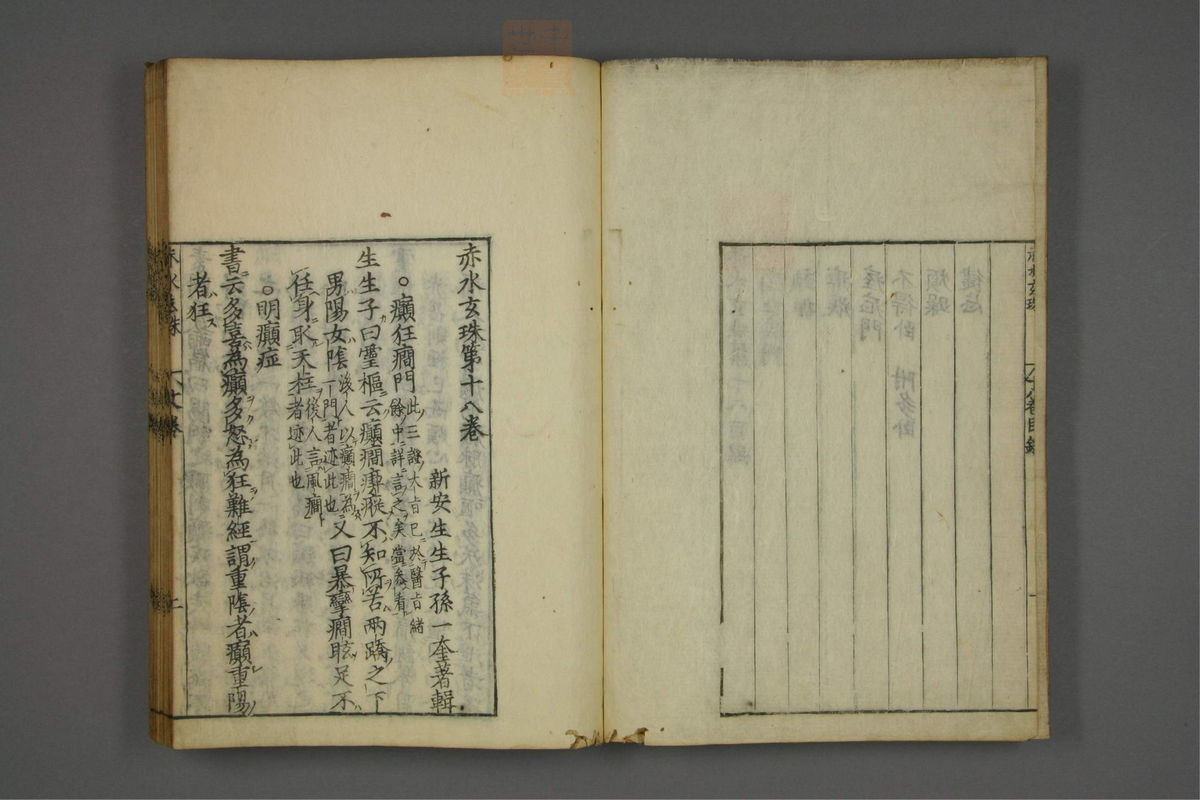 赤水玄珠
赤水玄珠第十八卷
新安生生子孫一奎著輯
○癲狂癇門此三證大旨已於醫旨緒餘中詳言之矣當參看
生生子曰靈樞云癲癇瘈瘲不知所苦兩蹻之下
男陽女陰後人以癲癇為一門者迹此也又曰暴攣癇眩足不
任身取天柱後人言風癇者迹此也
○明癲症
書云多喜為癲多怒為狂難經謂重陰者癲重陽
者狂